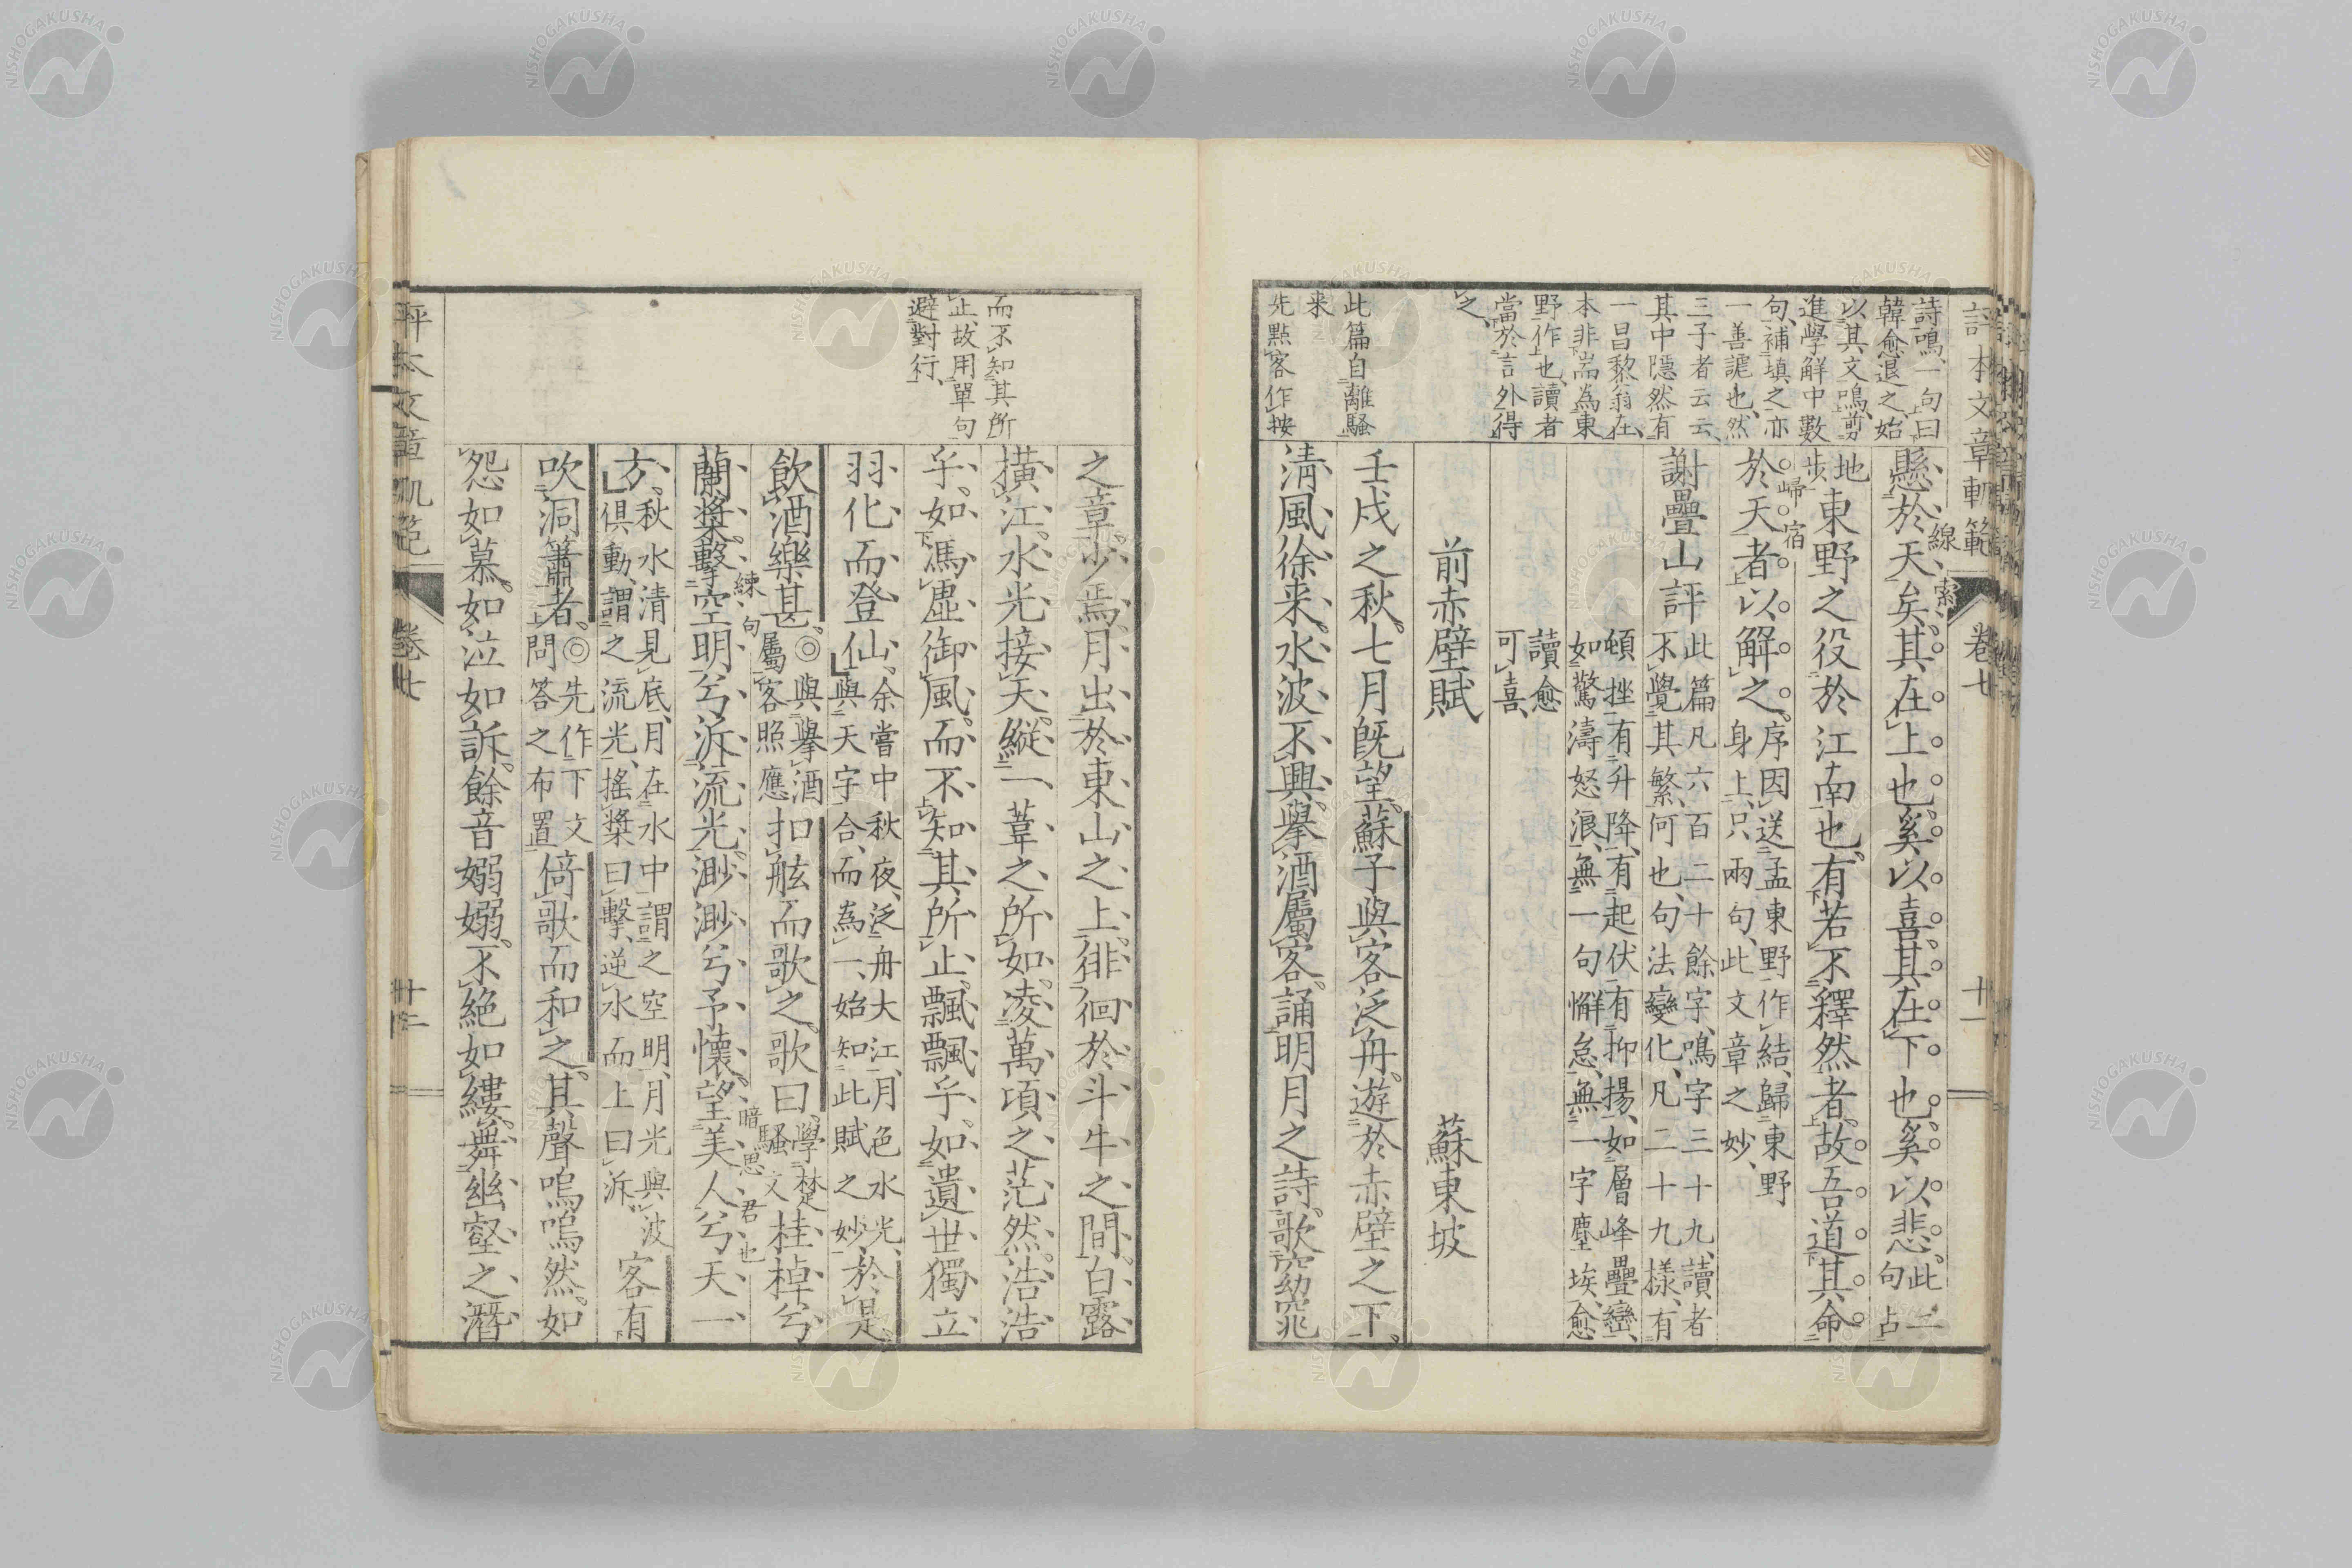 評本文章軌範 卷七 十一
詩鳴、一句曰
韓愈退之、始
以其文鳴、剪
進學解中數
句、補填之亦
一善謔也、然
三子者云云、
其中隱然有
一昌黎翁在、
本非耑為東
野作也、讀者
當於言外得
之、
此篇自離騷
来
先點客作按
懸於天矣、其在上也、奚以喜、其在下也、奚以悲、此二句占
線索
地步東野之役於江南也、有若不釋然者、故吾道其命
歸宿
於天者以解之。序因送孟東野作、結歸東野身上、只兩句、此文章之妙、
謝疊山評 此篇凡六百二十餘字、鳴字三十九、讀者不覺其繁、何也、句法變化、凡二十九樣、有
頓挫、有升降、有起伏、有抑揚、如層峰疊巒、如驚濤怒浪、無一句懈怠、無一字塵埃、愈
讀愈可喜、
前赤壁賦 蘇東坡
壬戌之秋、七月既望、蘇子與客泛舟、遊於赤壁之下。
清風徐来、水波不興、擧酒屬客、誦明月之詩、歌窈窕
而不知其所
止、故用單句
避對行、
之章、少焉、月出於東山之上、徘徊於斗牛之間、白露
橫江、水光接天、縱一葦之所如、凌萬頃之茫然、浩浩
乎、如馮虛御風、而不知其所止、飄飄乎、如遺世獨立
羽化而登仙、余嘗中秋夜、泛舟大江、月色水光、與天字合、而為一、始知此賦之妙、於是
飲酒樂甚、◎與擧酒屬客照應 扣舷而歌之、歌曰、學楚騷文 桂棹兮
練句
蘭槳、擊空明兮泝流光、渺渺兮予懷、望美人兮天一
暗思君也
方、秋水清見底、月在水中、謂之空明、月光與波俱動、謂之流光、搖槳曰擊、逆水而上曰泝、客有
吹洞簫者、◎先作下文問答之布置 倚歌而和之、其聲嗚嗚然、如
怨如慕、如泣如訴、餘音嫋嫋、不絕如縷、舞幽壑之潛
評本文章軌範 卷七 十二